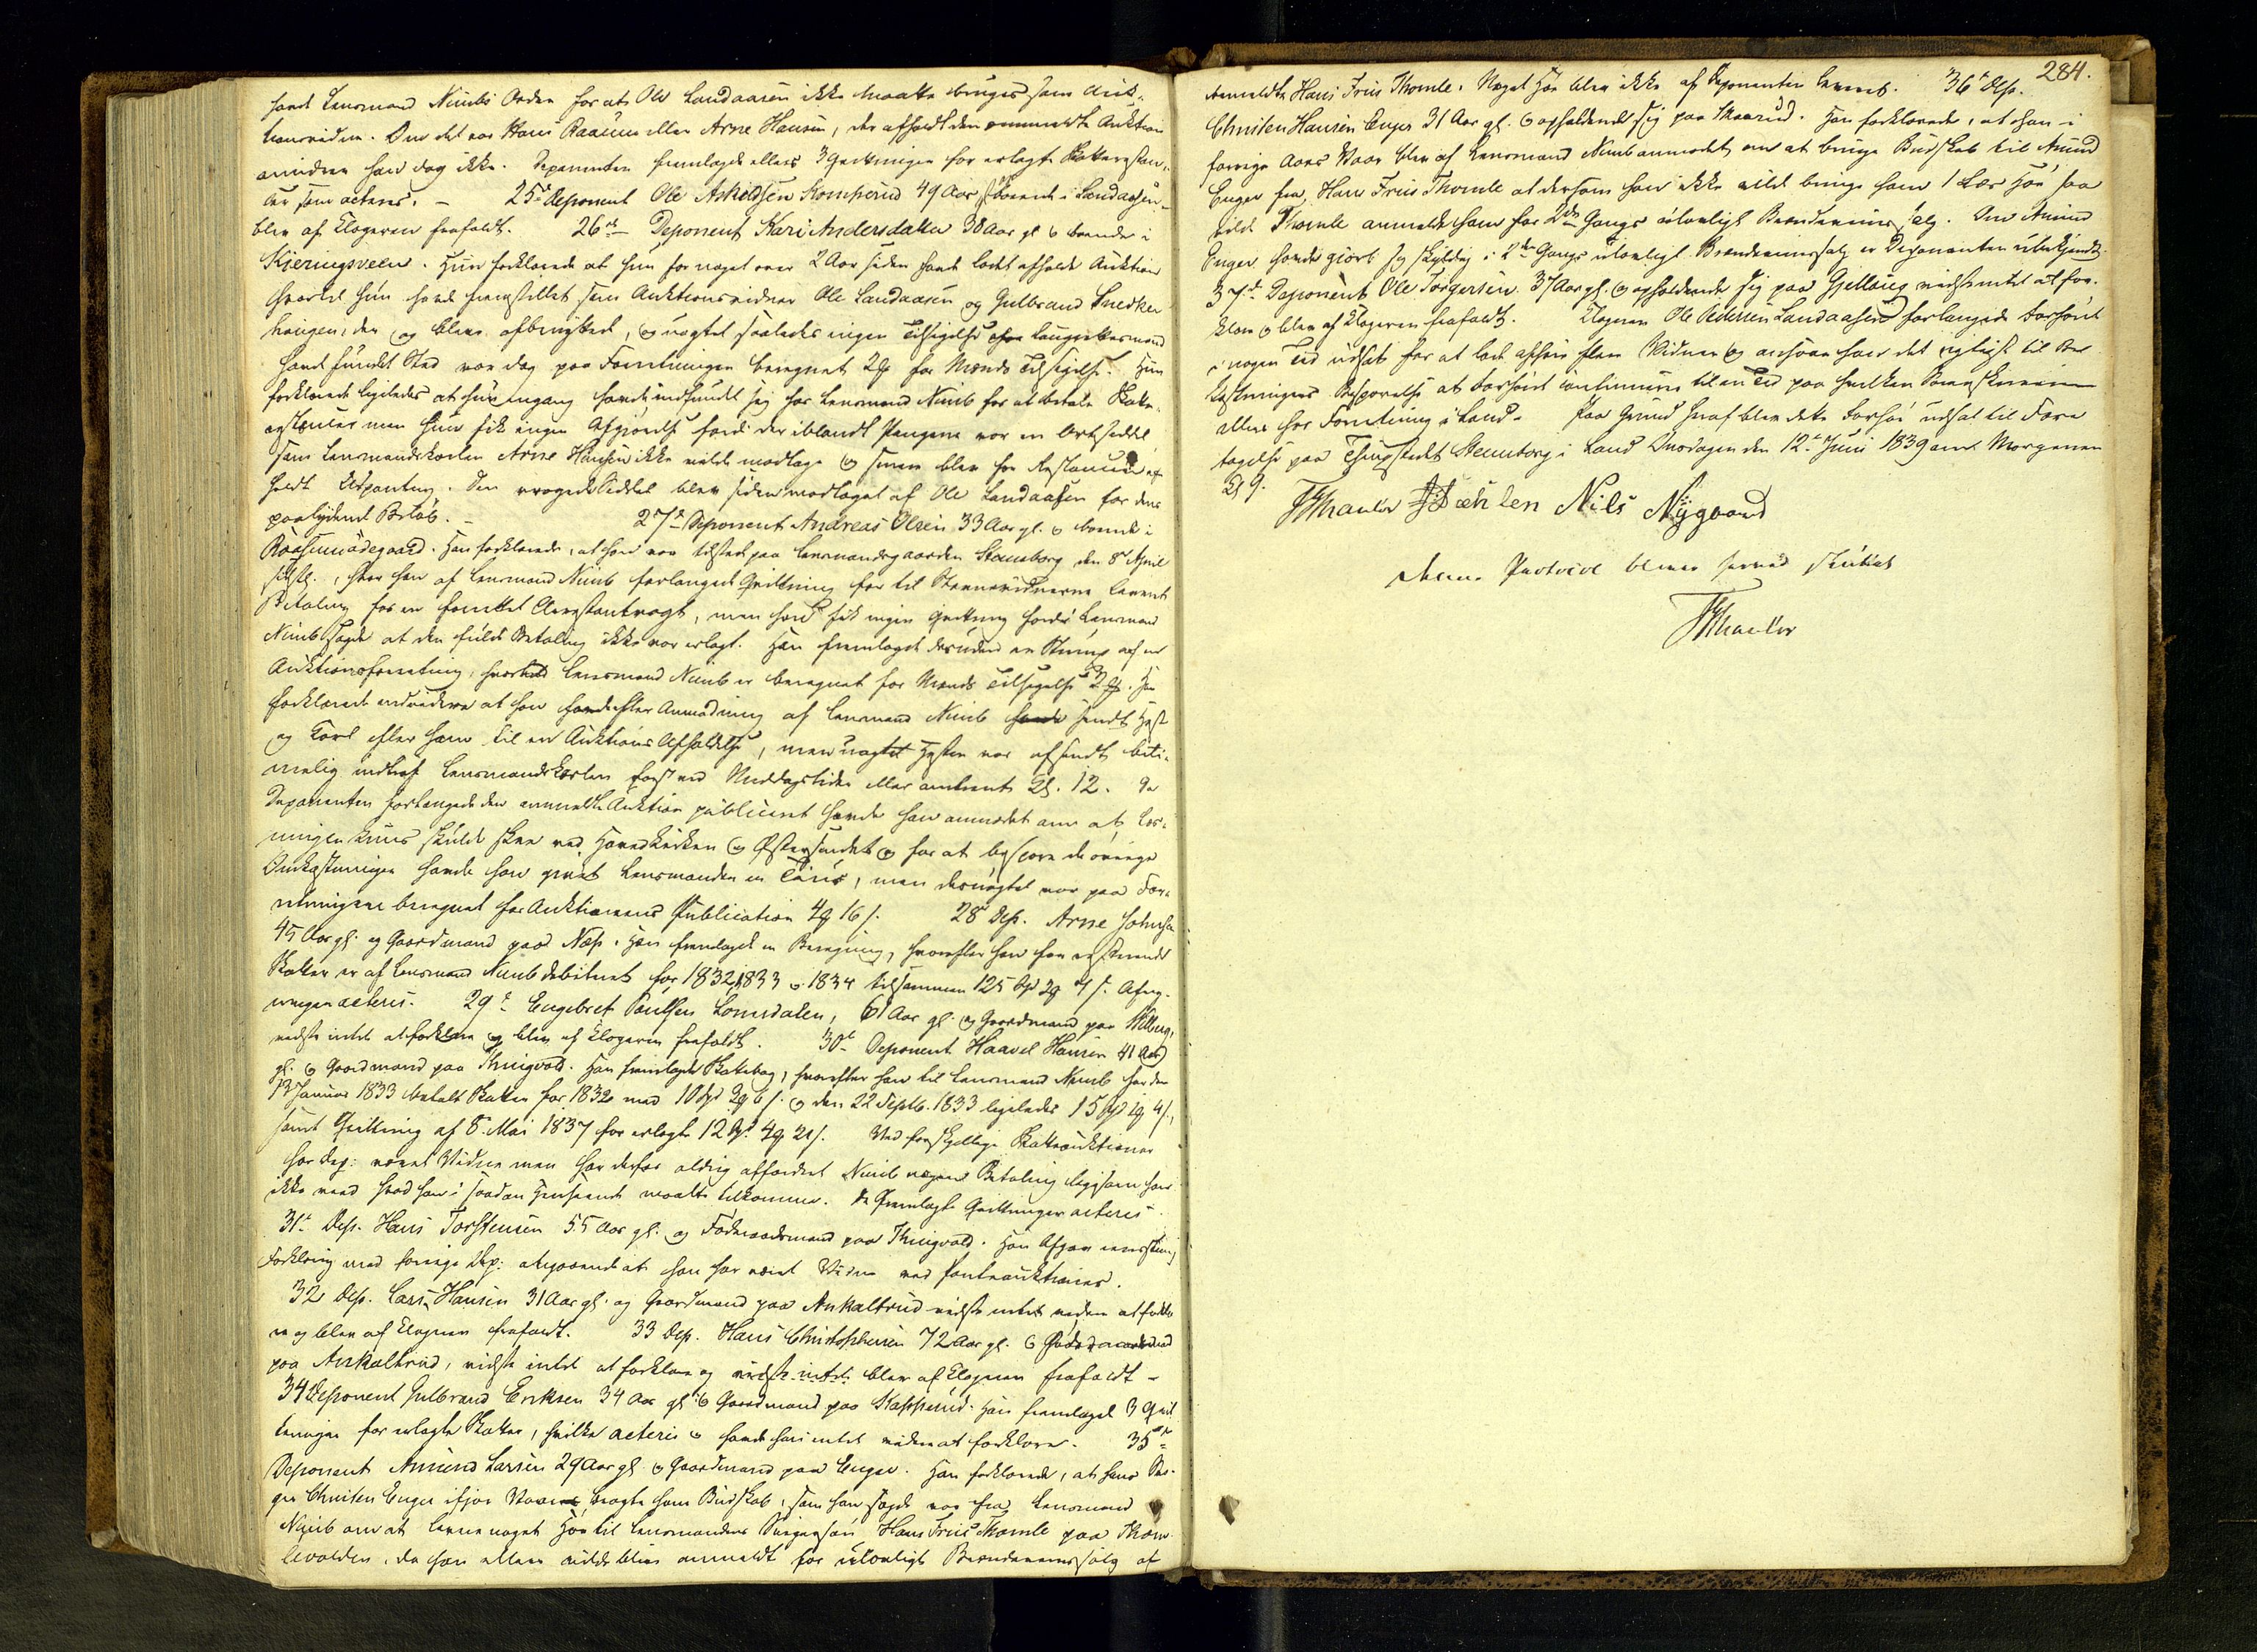 havt Lensmand Niimbs Orden for at Ole Landaasen ikke maatte bruges som Auk-
tionsvidne. Om det var Hans Raaum eller Arne Hansen, der afholdt den ommeldte Auktion
mindes han dog ikke. Deponenten fremlagde ellers 3 Qvitteringer for erlagte Skatterestan-
cer som acteres. – 25de Deponent Ole Askeldsen Komperud 49 Aar, boende i Landaasen
blev af Klageren frafaldt. 26de Deponent Kari Andersdatter 38 Aar gl. & boende i
Kjeringsveen. Hun forklarede at hun for noget over 2 Aar siden havde ladet afholde Auktion
hvortil hun havde fremstillet som Auktionsvidner Ole Landaasen og Gulbrand Snedker
haugen, der og bleve afbenyttede, og uagtet saaledes ingen Tilsigelse af Laugrettesmænd
havde fundet Sted var dog paa Forretningen beregnet 2 for Mænds Tilsigelse. Hun
forklarede ligeledes at hun engang havde indfundet sig hos Lensmand Niimb for at betale Skatte-
restancer men hun fik ingen Afgjørelse fordi der iblandt Pengene var en Ortseddel
som Lensmandskarlen Arne Hansen ikke vilde modtage & senere blev for Restancen af-
holdt Udpantning. Den vragede Seddel blev siden modtaget af Ole Landaasen for dens
paalydende Beløb. – 27de Deponent Andreas Olsen 33 Aar gl. & boende i
Raasumødegaard. Han forklarede, at han var tilstede paa Lensmandsgaarden Stensborg den 8de April
sidstl., hvor han af Lensmand Niimb forlangede Qvittering for til Stevnevidnerne leveret
Betaling for en forrettet Arrestantvagt, men han fik ingen Qvittering fordi Lensmand
Niimb sagde at den fulde Betaling ikke var erlagt. Han fremlagde desuden en Stump af en
Auktionsforretning, hvorved Lensmand Niimb er beregnet for Mænds Tilsigelse 2. Han
forklarede endvidere at han havde efter Anmodning af Lensmand Niimb sendt Hest
og Karl efter ham til en Auktions Afholdelse, men uagtet Hesten var afsendt beti-
melig indtraf Lensmandskarlen først ved Middagstider eller omtrent Kl. 12. Da
Deponenten forlangede den ommeldte Auktion publiceret havde han anmodet om at Læs-
ningen kun skulde skee ved Hovedkirken & Østersundet & for at bespare de øvrige
Omkostninger havde han givet Lensmanden en , men desuagtet var paa For-
retningen beregnet for Auktionens Publication 4 16 s. 28de Dep. Arne Johnsen
45 Aar gl. og Gaardmand paa Næss. Han fremlagde en Beregning, hvorefter han for resterende
Skatter er af Lensmand Niimb debiteret for 1832, 1833 & 1834 tilsammen 125 2 4 s. Afreg-
ningen acteres. 29de Engebret Paulsen Lomsdalen, 61 Aar gl. & Gaardmand paa ,
vidste intet at forklare og blev af Klageren frafaldt. 30te Deponent Haavel Hansen 41 Aar
gl. & Gaardmand paa Thingvold. Han fremlagde Skattebog, hvorefter han til Lensmand Niimb har den
13 Januar 1833 betalt Skatter for 1832 med 10 2 6 s. & den 22 Septb. 1833 ligeledes 15 1 4 s,
samt Qvittering af 8 Mai 1837 for erlagte 12 4 21 s. Ved forskjellige Skatteauktioner
har Dep: været Vidne men har derfor aldrig affordret Niimb nogen Betaling ligesom han
ikke veed hvad han i saadan Henseende maatte tilkomme. De fremlagte Qvitteringer acteres
31te Dep. Hans Torstensen 55 Aar gl. og Føderaadsmand paa Thingvold. Han afgav eensstemmig
Forklaring med forrige Dep: angaaende at han har været Vidne ved Panteauktioner.
32 Dep. Lars Hansen 31 Aar gl. og Gaardmand paa Askaltrud vidste intet videre at forkla-
re og blev af Klageren frafaldt. 33 Dep. Hans Christophersen 72 Aar gl. & Føderaadsmand
paa Askaltrud, vidste intet at forklare og vidste intet blev af Klageren frafaldt –
34 Deponent Gulbrand Eriksen 34 Aar gl. & Gaardmand paa Klapperud. Han fremlagde 3 Qvit
teringer for erlagte Skatter, hvilke acteres & havde han intet videre at forklare. 35te
Deponent Amund Larsen 29 Aar gl. & Gaardmand paa Enger. Han forklarede, at hans
Christen Enger ifjor Vaar bragte ham Budskab, som han sagde var fra Lensmand
Niimb om at levere noget Høe til Lensmandens Svigersøn Hans Friis Thomle paa Thom-
levolden, da han ellers vilde blive anmeldt for ulovligt Brændeviinssalg af
284.
bemeldte Hans Friis Thomle. Noget Høe blev ikke af Deponenten leveret. 36te Dep.
Christen Hansen Enger 31 Aar gl. & opholdende sig paa Skaarud. Han forklarede, at han i
forrige Aars Vaar blev af Lensmand Niimb anmodet om at bringe Budskab til Amund
Enger fra Hans Friis Thomle at dersom han ikke vilde bringe ham 1 Læs Høe saa
vilde Thomle anmelde ham for 2den Gangs ulovligt Brændeviinssalg. Om Amund
Enger havde gjort sig skyldig i 2den Gangs ulovligt Brændeviinssalg er Deponenten ubekjendt.
37te Deponent Ole Torgersen 37 Aar gl. & opholdende sig paa Gjellaug vidste intet at for-
klare & blev af Klageren frafaldt. Klageren Ole Pedersen Landaasen forlangede Forhøret
i nogen Tid udsat for at lade afhøre flere Vidner & ansaae han det rigtigst til Be
kostningers Besparelse at Forhøret continuerer til en Tid paa hvilken Sorenskriveren
ellers har Forretning i Land. Paa Grund heraf blev dette Forhør udsat til Fore
tagelse paa Thingstedet Stensborg i Land Onsdagen den 12te Juni 1839 om Morgenen
Kl. 9.
Nils Nygaard
Denne Protocol bliver herved sluttet